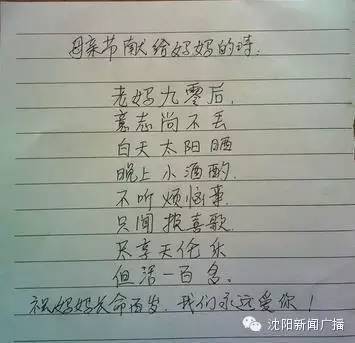 母亲节献给妈妈的诗.
老妈九零后,
意志尚不丢
白天太阳晒
晚上小酒酌.
不听烦恼事.
只闻报喜歌.
尽享天伦乐
但活一百多.
祝妈妈长命百岁.我们永远爱你!
沈阳新闻广播